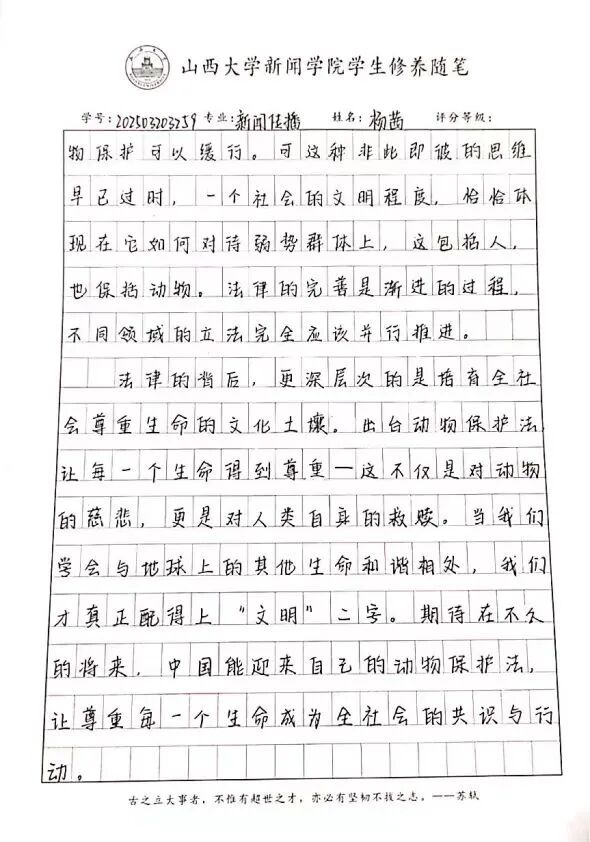 山西大学新闻学院学生修养随笔
学号:202503203259 专业:新闻传播 姓名:杨茜 评分等级:
物保护可以缓行。可这种非此即彼的思维
早已过时，一个社会的文明程度，恰恰体
现在它如何对待弱势群体上，这包括人，
也保括动物。法律的完善是渐进的过程，
不同领域的立法完全应该并行推进。
法律的背后，更深层次的是培育全社
会尊重生命的文化土壤。出台动物保护法
让每一个生命得到尊重—这不仅是对动物
的慈悲，更是对人类自身的救赎。当我们
学会与地球上的其他生命和谐相处，我们
才真正配得上“文明”二字。期待在不久
的将来，中国能迎来自己的动物保护法，
让尊重每一个生命成为全社会的共识与行
动。
古之立大事者，不惟有超世之才，亦必有坚韧不拔之志。——苏轼